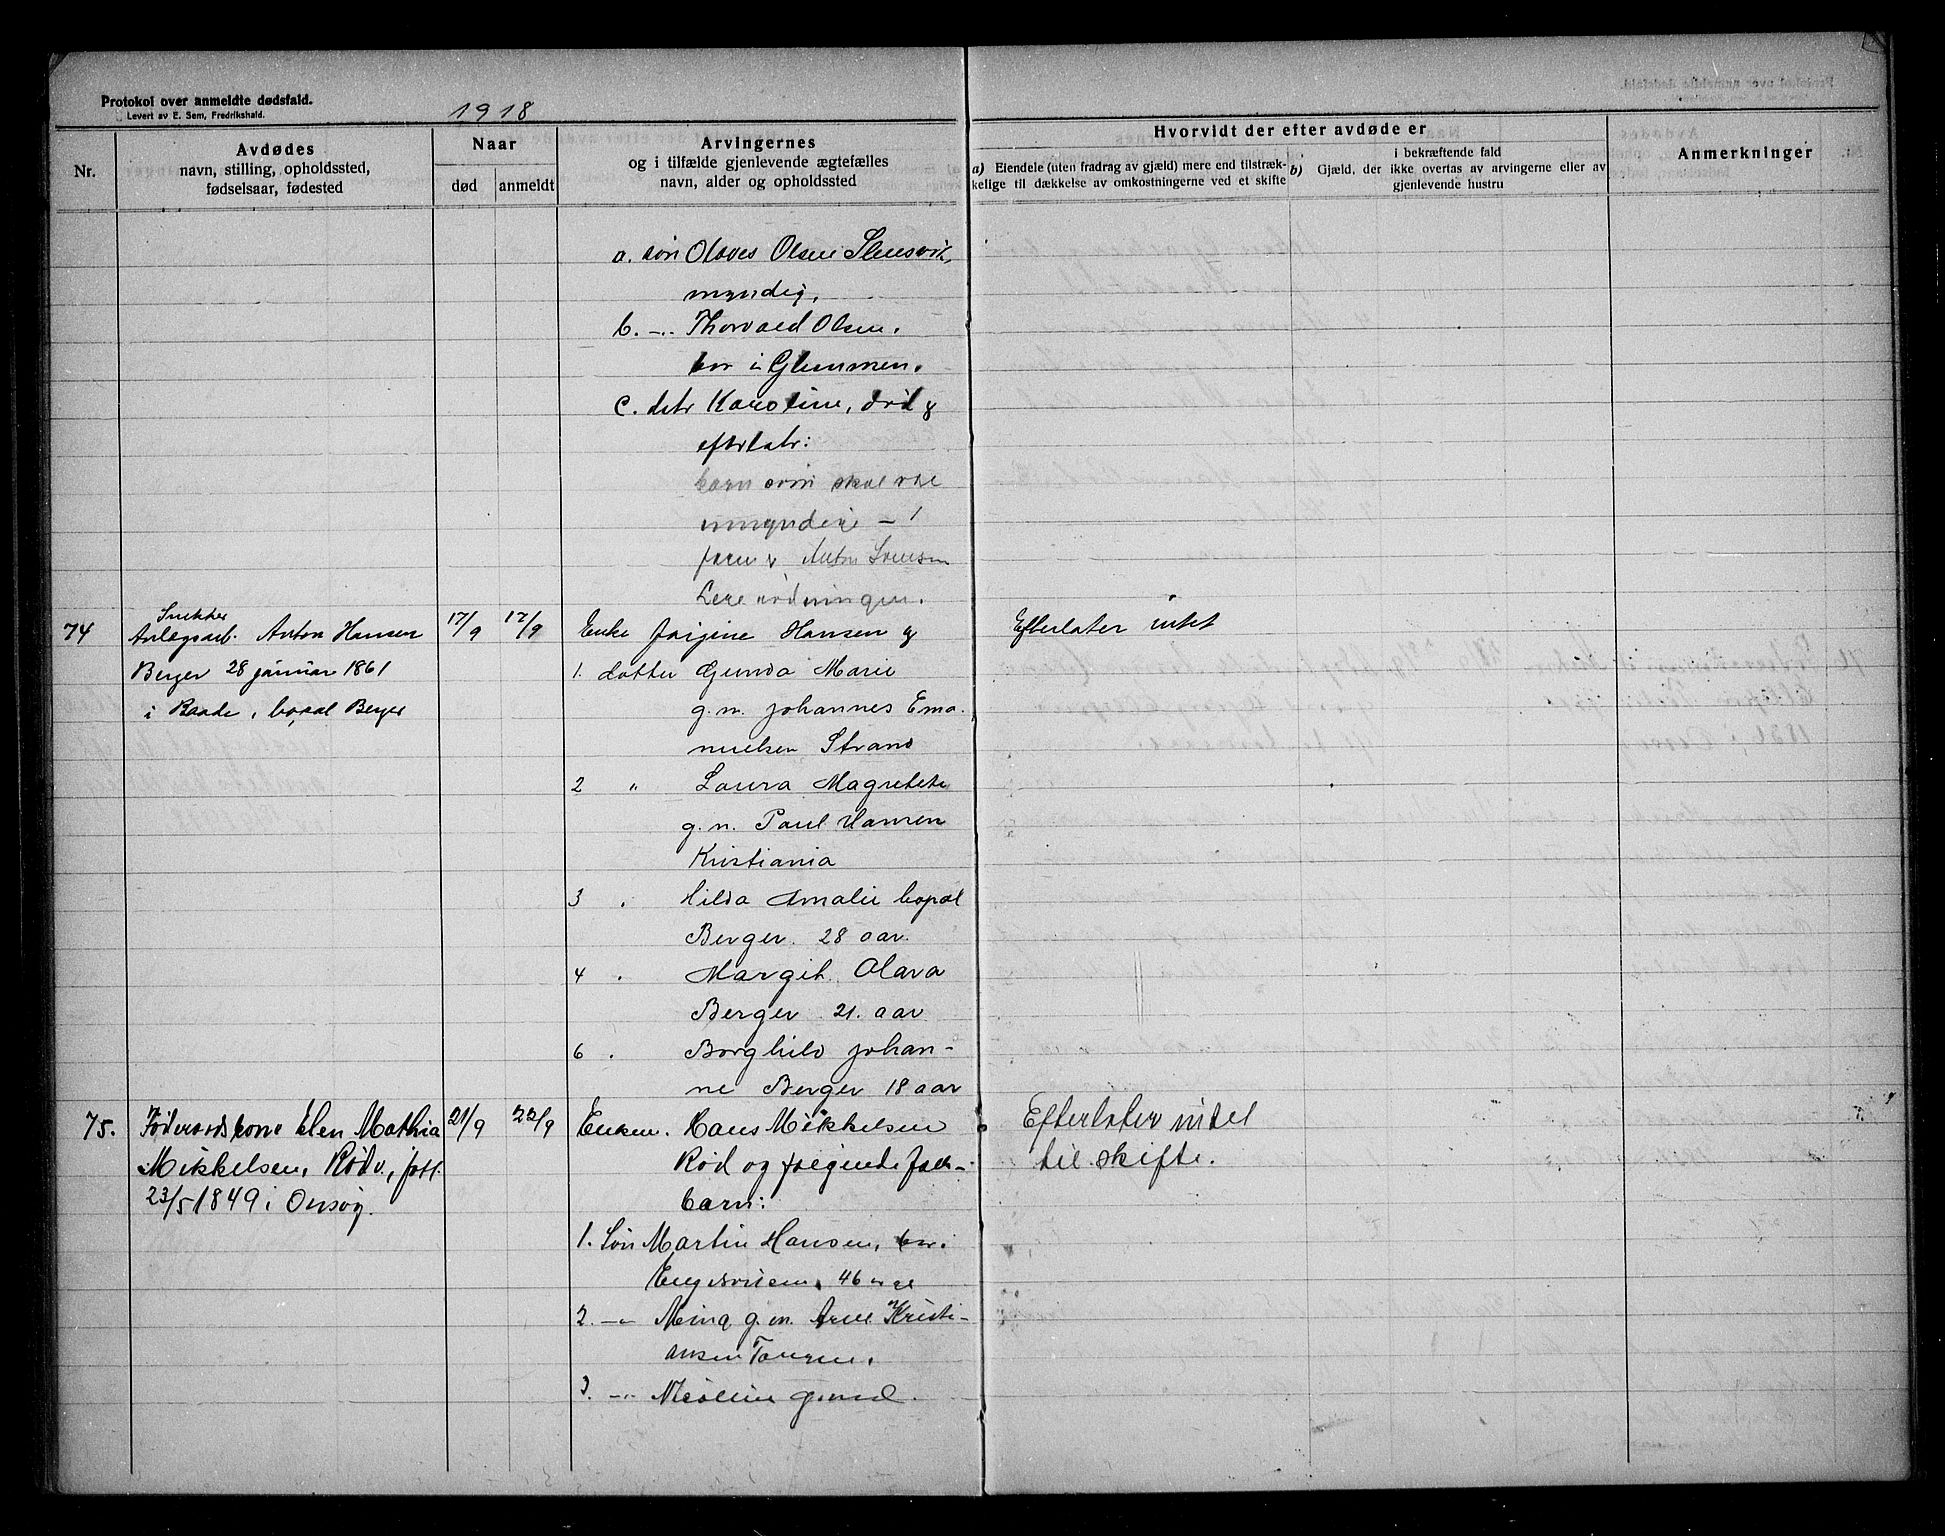 Protokol over anmeldte dødsfald.
Levert av E. Sem, Fredrikshald.
1918
Nr.
Avdødes
navn, stilling, opholdssted,
fødselsaar, fødested
Naar
død
anmeldt
Arvingernes
og i tilfælde gjenlevende ægtefælles
navn, alder og opholdssted
Hvorvidt der efter avdøde er
a) Eiendele (uten fradrag av gjæld) mere end tilstræk-
kelige til dækkelse av omkostningerne ved et skifte
b) Gjæld, der i bekræftende fald
ikke overtas av arvingerne eller av
gjenlevende hustru
Anmerkninger
a. søn Olaves Olsen Slensvik,
myndig.
b. -"- Thorvald Olsen.
bor i Glemmen.
c. datr Karoline, død &
efterlatr:
barn som skal være
umyndige - 1
faren er Anton
74
Snekker
Anlegsarb. Anton Hansen
Berger 28 januar 1861
i Raade, bopæl Berger
17/9
17/9
Enke Jørgine Hansen og
1. datter Gunda Marie
g.m. Johannes Ema-
nuelsen Strand
2 " Laura Magrethe
g.m. Paul Hansen
Kristiania
3 " Hilda Amalie bopæl
Berger. 28 aar.
4 " Margit Olava
Berger 21. aar
6 " Borghild Johan-
ne Berger 18 aar
Efterlater intet
75.
Føderaadskone Elen Mathia
Mikkelsen, Rød v., født
23/5 1849 i Onsøy.
21/9
22/9
Enkem. Hans Mikkelsen
Rød og følgende fæl-
barn:
1. Søn Martin Hansen, bor i
Engelsviken, 46 aar
2. -"- Mina g.m. Arne Kristi-
ansen Tangen.
3. -"- Nicoline g. med
Efterlater intet
til skifte.